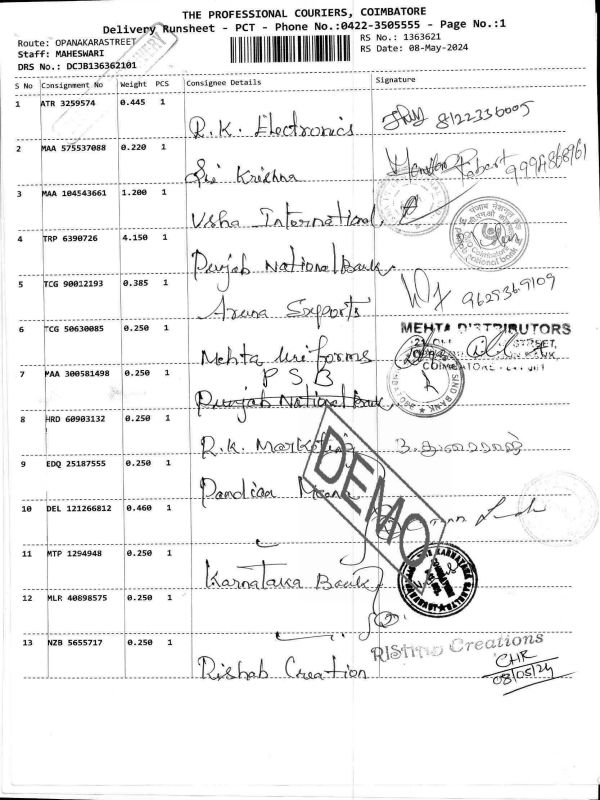 THE PROFESSIONAL COURIERS, COIMBATORE
Delivery Runsheet - PCT - Phone No.:0422-3505555 - Page No.:1
Route: OPANAKARASTREET
RS No.: 1363621
Staff: MAHESWARI
RS Date: 08-May-2024
DRS No.: DCJB136362101
S No Consignment No Weight PCS Consignee Details Signature
1 ATR 3259574 0.445 1
R.K. Electronics 8122336005
2 MAA 575537088 0.220 1
Sri Krishna Robert 9994868961
3 MAA 104543661 1.200 1
Usha International,
4 TRP 6390726 4.150 1
Punjab National Bank,
5 TCG 90012193 0.385 1
Aruna Supports 9629369109
6 TCG 50630085 0.250 1
MEHTA DISTRIBUTORS
Mehta Uniforms
COIMBATORE
7 MAA 300581498 0.250 1
P S B
SIND BANK
Punjab National Bank,
8 HRD 60903132 0.250 1
R.K. Marketing
9 EDQ 25187555 0.250 1
Pandian
DEMO
10 DEL 121266812 0.460 1
11 MTP 1294948 0.250 1
Karnataka Bank
12 MLR 40898575 0.250 1
13 NZB 5655717 0.250 1
Creations
Rishab Creation
CHR
08/05/24